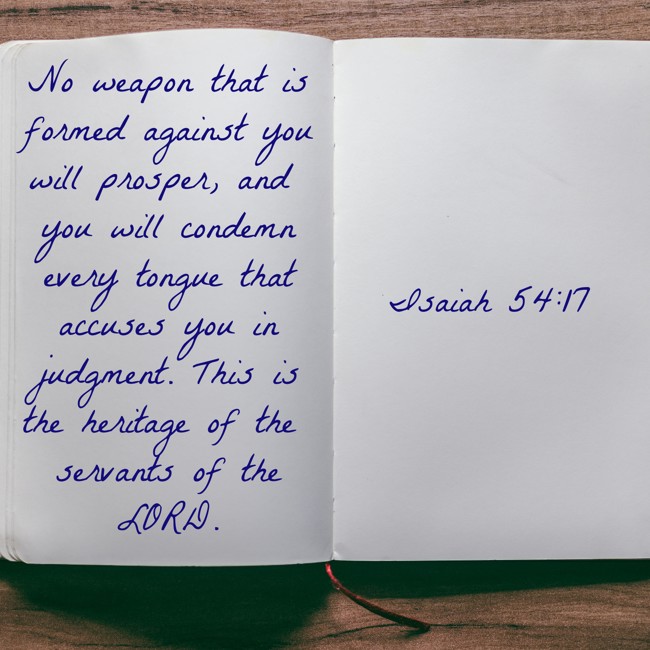 No weapon that is
formed against you
will prosper, and
you will condemn
every tongue that
accuses you in
judgment. This is
the heritage of the
servants of the
LORD.
Isaiah 54:17